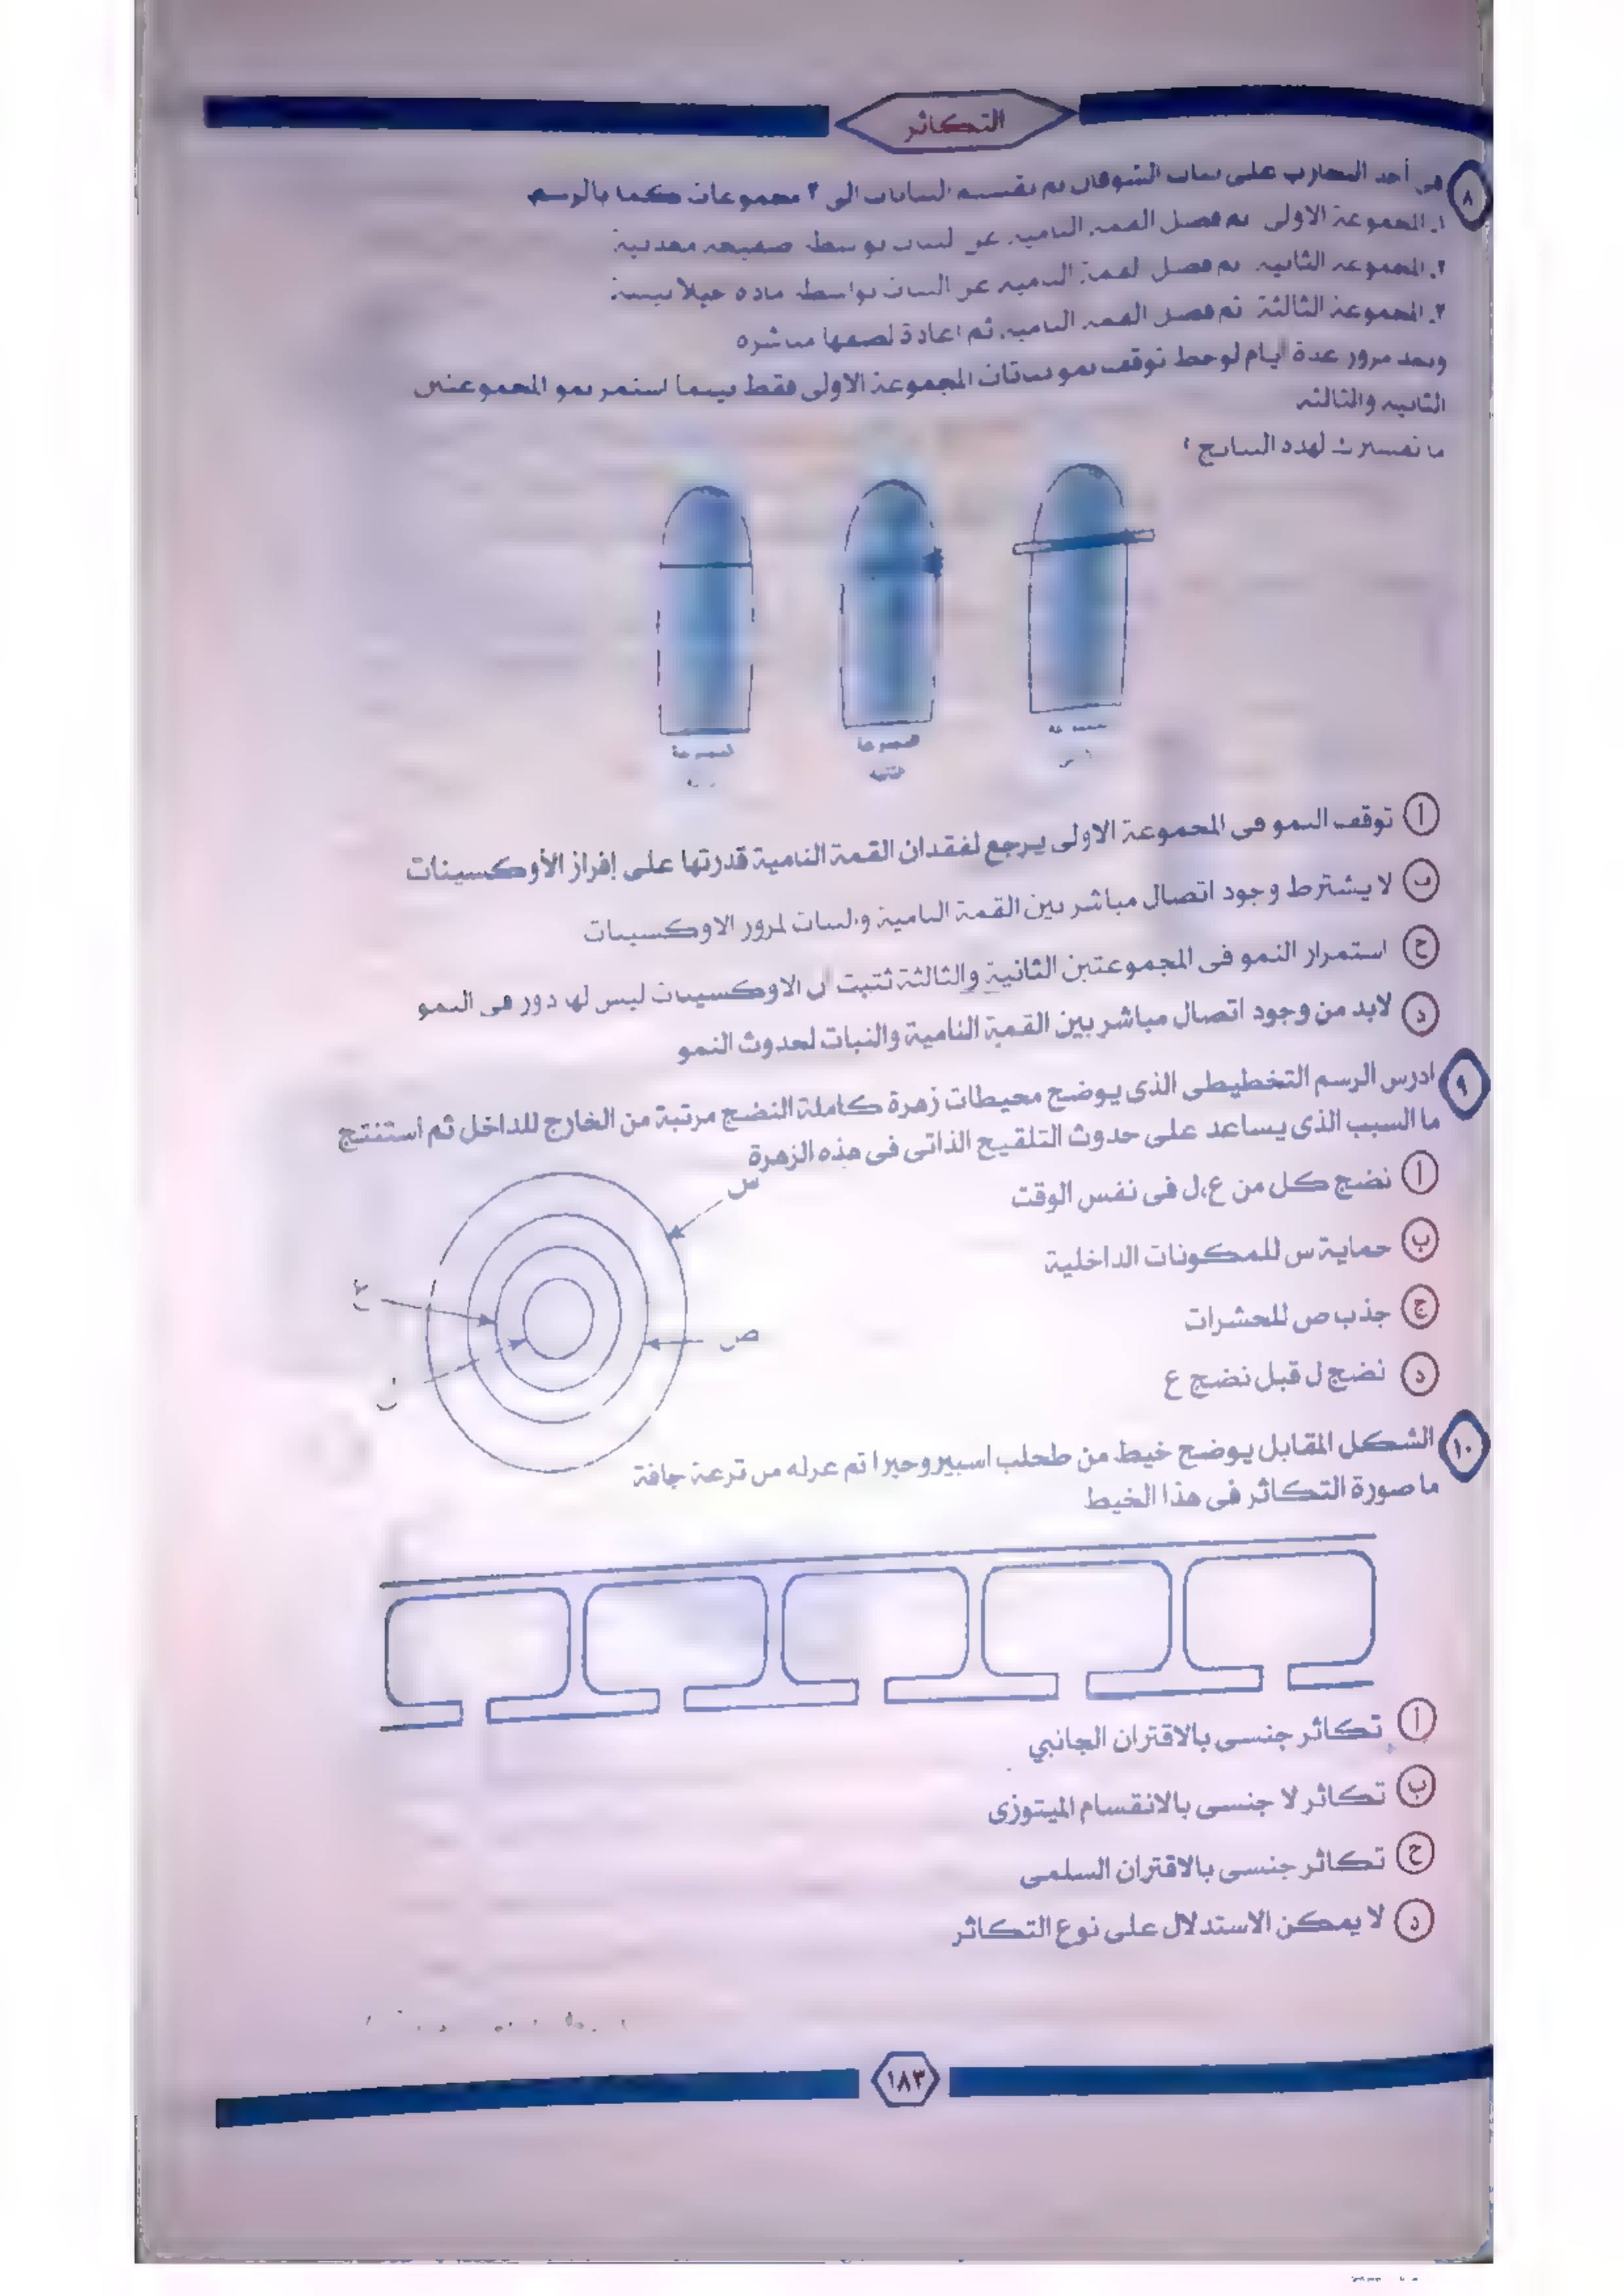 التكاثر
٨ في أحد التجارب على نبات الشوفان تم تقسيم النباتات الى ٣ مجموعات كما بالرسم
١. المجموعة الاولى تم فصل القمة النامية عن النبات بواسطة صفيحة معدنية
٢. المجموعة الثانية تم فصل القمة النامية عن النبات بواسطة مادة جيلاتينية
٣. المجموعة الثالثة تم فصل القمة النامية ثم اعادة لصقها مباشرة
وبعد مرور عدة ايام لوحظ توقف نمو نباتات المجموعة الاولى فقط بينما استمر نمو المجموعتين
الثانية والثالثة
ما تفسيرك لهذه النتائج ؟
المجموعة المجموعة
الثانية
أ توقف النمو في المجموعة الاولى يرجع لفقدان القمة النامية قدرتها على إفراز الأوكسينات
ب لا يشترط وجود اتصال مباشر بين القمة النامية والنبات لمرور الاوكسينات
ج استمرار النمو في المجموعتين الثانية والثالثة تثبت أن الاوكسينات ليس لها دور في النمو
د لابد من وجود اتصال مباشر بين القمة النامية والنبات لحدوث النمو
٩ ادرس الرسم التخطيطى الذى يوضح محيطات زهرة كاملة النضج مرتبة من الخارج للداخل ثم استنتج
ما السبب الذى يساعد على حدوث التلقيح الذاتى فى هذه الزهرة
أ نضج كل من ع،ل فى نفس الوقت
ب حماية س للمكونات الداخلية
ج جذب ص للحشرات
د نضج ل قبل نضج ع
س
ع
ص
ل
١٠ الشكل المقابل يوضح خيط من طحلب اسبيروجيرا تم عزله من ترعة جافة
ما صورة التكاثر فى هذا الخيط
أ تكاثر جنسى بالاقتران الجانبي
ب تكاثر لا جنسى بالانقسام الميتوزى
ج تكاثر جنسى بالاقتران السلمى
د لا يمكن الاستدلال على نوع التكاثر
١٨٣